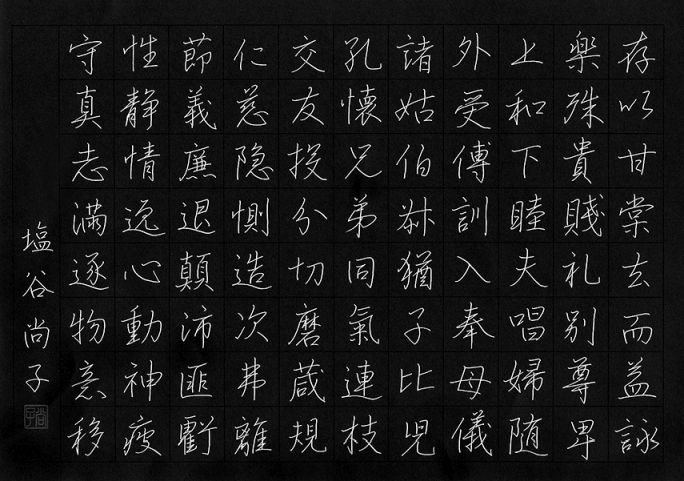 存以甘棠去而益詠
楽殊貴賤礼別尊卑
上和下睦夫唱婦随
外受傅訓入奉母儀
諸姑伯叔猶子比児
孔懐兄弟同氣連枝
交友投分切磨箴規
仁慈隐惻造次弗離
節義廉退顛沛匪虧
性静情逸心動神疲
守真志満逐物意移
塩谷尚子